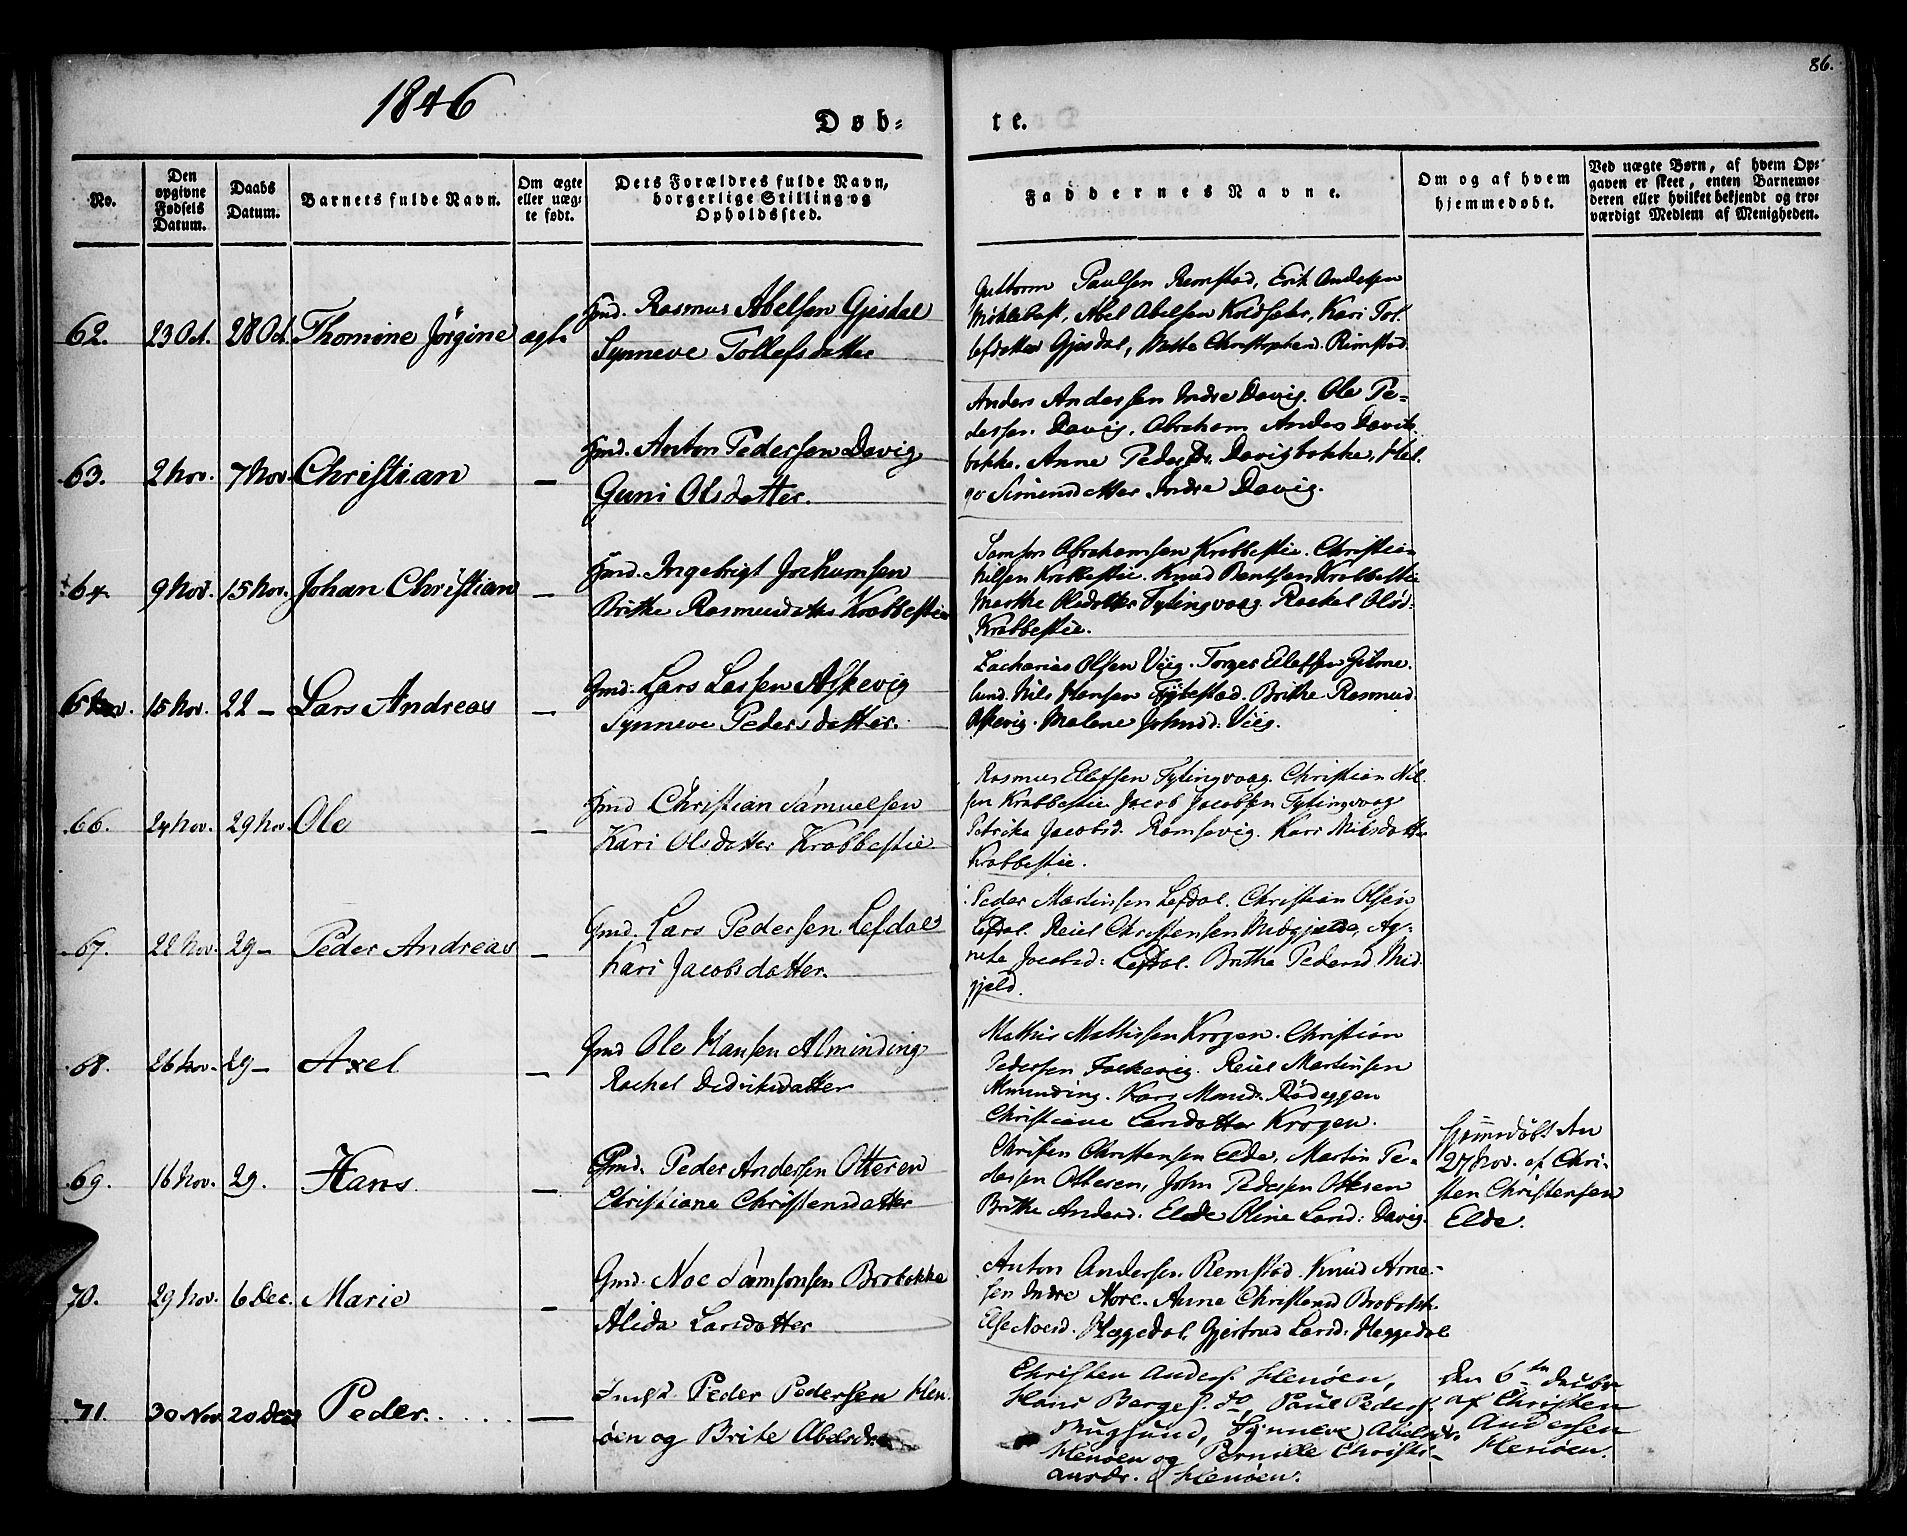 86.
1846
Døb-
te.
No.
Den opgivne Fødsels Datum.
Daabs Datum.
Barnets fulde Navn.
Om ægte eller uægte født.
Dets Forældres fulde Navn, borgerlige Stilling og Opholdssted.
Faddernes Navne.
Om og af hvem hjemmedøbt.
Ved uægte Børn, af hvem Opgaven er skeet, enten Barnemoderen eller hvilket bekjendt og troværdigt Medlem af Menigheden.
62. 23 Oct. 28 Oct. Thomine Jørgine ægte
Gmd. Rasmus Abelsen Gjesdal
Synneve Tollefsdatter
Guttorm Paulsen Remstad, Erik Andersen
Mikkelbust, Abel Abelsen Koldsæhr, Kari Tol-
lefdatter Gjesdal, Mette Christophersd. Rimstad.
63. 2 Nov. 7 Nov. Christian —
Gmd. Anton Pedersen Davig
Guni Olsdatter.
Anders Andersen Indre Davig. Ole Pe-
dersen Davig, Abraham Anders Davik-
bakke. Anne Pedersdr. Davigbakke, Hel-
ge Simensdatter Indre Davig.
64. 9 Nov. 15 Nov. Johan Christian —
Gmd. Ingebrigt Jochumsen
Brithe Rasmusdatter Krabbestie
Samson Abrahamsen Krabbestie. Christian
Nilsen Krabbestie. Knud Bentsen Krabbestie
Marthe Olsdatter Tytingvaag. Rackel Olsd.
Krabbestie.
65. 15 Nov. 22 — Lars Andreas —
Gmd. Lars Larsen Askevig
Synneve Pedersdatter.
Zacharias Olsen Viig. Torger Ellefsen Gilme-
lund. Nils Hansen Tybestad. Brithe Rasmusd.
Askevig. Malene Johnsd: Viig.
66. 24 Nov. 29 Nov. Ole —
Gmd Christian Samuelsen
Kari Olsdatter Krabbestie
Rasmus Elefsen Tytingvaag. Christian Nil-
sen Krabbestie Jacob Jacobsen Tytingvaag
Petrike Jacobsd. Ramsevig. Kari Nilsdatter
Krabbestie.
67. 22 Nov. 29 — Peder Andreas —
Gmd. Lars Pedersen Lefdal
Kari Jacobsdatter.
Peder Martinsen Lefdal. Christian Olsen
Lefdal. Reiel Christensen Midgjelde, Ag-
nete Jacobsd: Lefdal. Brithe Pedersd. Mid-
gjeld.
68. 26 Nov. 29 — Axel —
Gmd Ole Hansen Alminding
Rachel Didriksdatter
Mathis Mathissen Krogen. Christian
Pedersen Fackevig. Reiel Martinsen
Alminding. Kari Monsd. Rødeggen
Christiane Larsdatter Krogen.
69. 16 Nov. 29. Hans —
Gmd. Peder Andersen Otteren
Christiane Christensdatter
Christen Christensen Elde, Martin Pe-
dersen Otteren, John Pedersen Otteren
Brithe Andersd. Elde Oline Larsd: Davig.
Hjemdøbt den
27 Nov. af Chri-
sten Christensen
Elde.
70. 29 Nov. 6 Dec. Marie —
Gmd. Noe Samsonsen Brobakke
Alida Larsdatter
Anton Andersen Remstad. Knud Arne-
sen Indre Hore. Anne Christensd Brobakk.
Else Noesd. Heggedal. Gjertrud Larsd: Heggedal
71. 30 Nov. 20 Dec. Peder. —
Peder Pedersen Hen-
øen og Brite Abelsdr.
Christen Anders. Henøen,
Hans Berges. do, Paul Peders.
Rugsund, Synneve Abelsdr.
Henøen og Pernille Christi-
ansdr. Henøen.
Den 6te Decbr
af Christen
Andersen
Henøen.